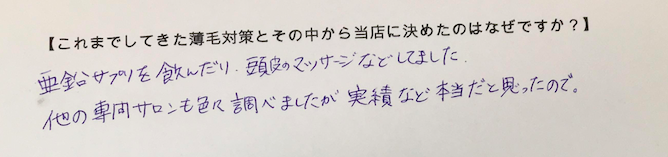 【これまでしてきた薄毛対策とその中から当店に決めたのはなぜですか？】
亜鉛サプリを飲んだり、頭皮のマッサージなどしました。
他の専門サロンも色々調べましたが実績など本当だと思ったので。